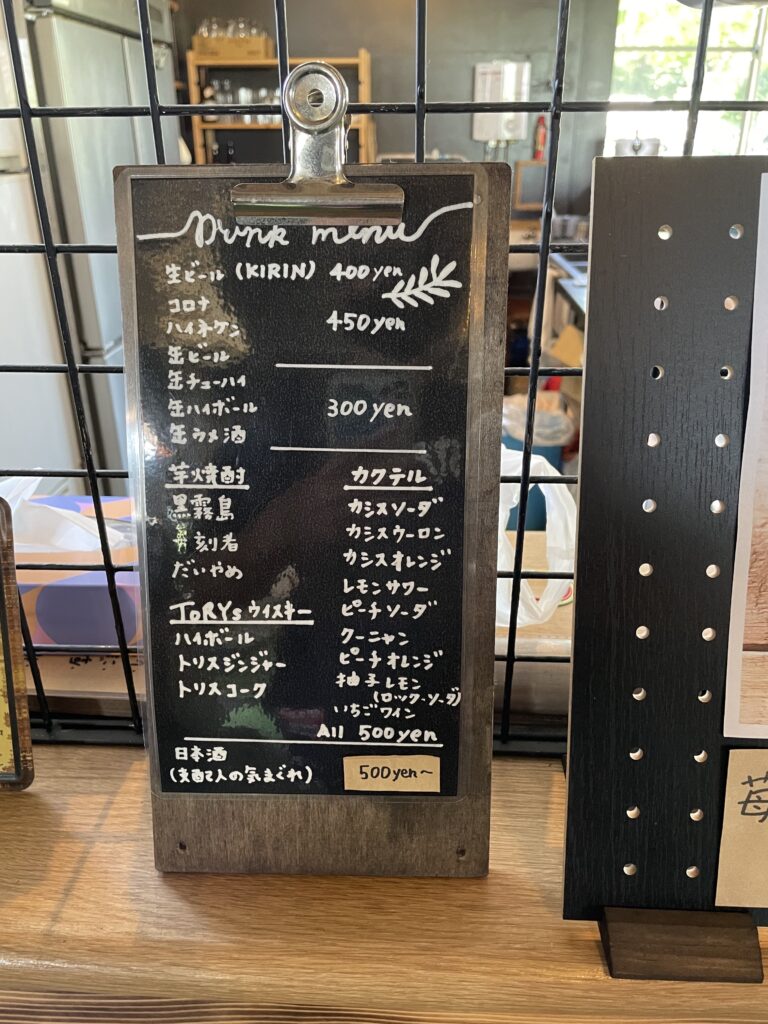 Drink menu
生ビール (KIRIN) 400yen
コロナ
ハイネケン 450yen
缶ビール
缶チューハイ
缶ハイボール 300yen
缶ウメ酒
芋焼酎
黒霧島
刻者
だいやめ
TORYs ウイスキー
ハイボール
トリスジンジャー
トリスコーク
カクテル
カシスソーダ
カシスウーロン
カシスオレンジ
レモンサワー
ピーチソーダ
クーニャン
ピーチオレンジ
柚子レモン
(ロック・ソーダ)
いちごワイン
All 500yen
日本酒
(支配人の気まぐれ) 500yen〜
苺